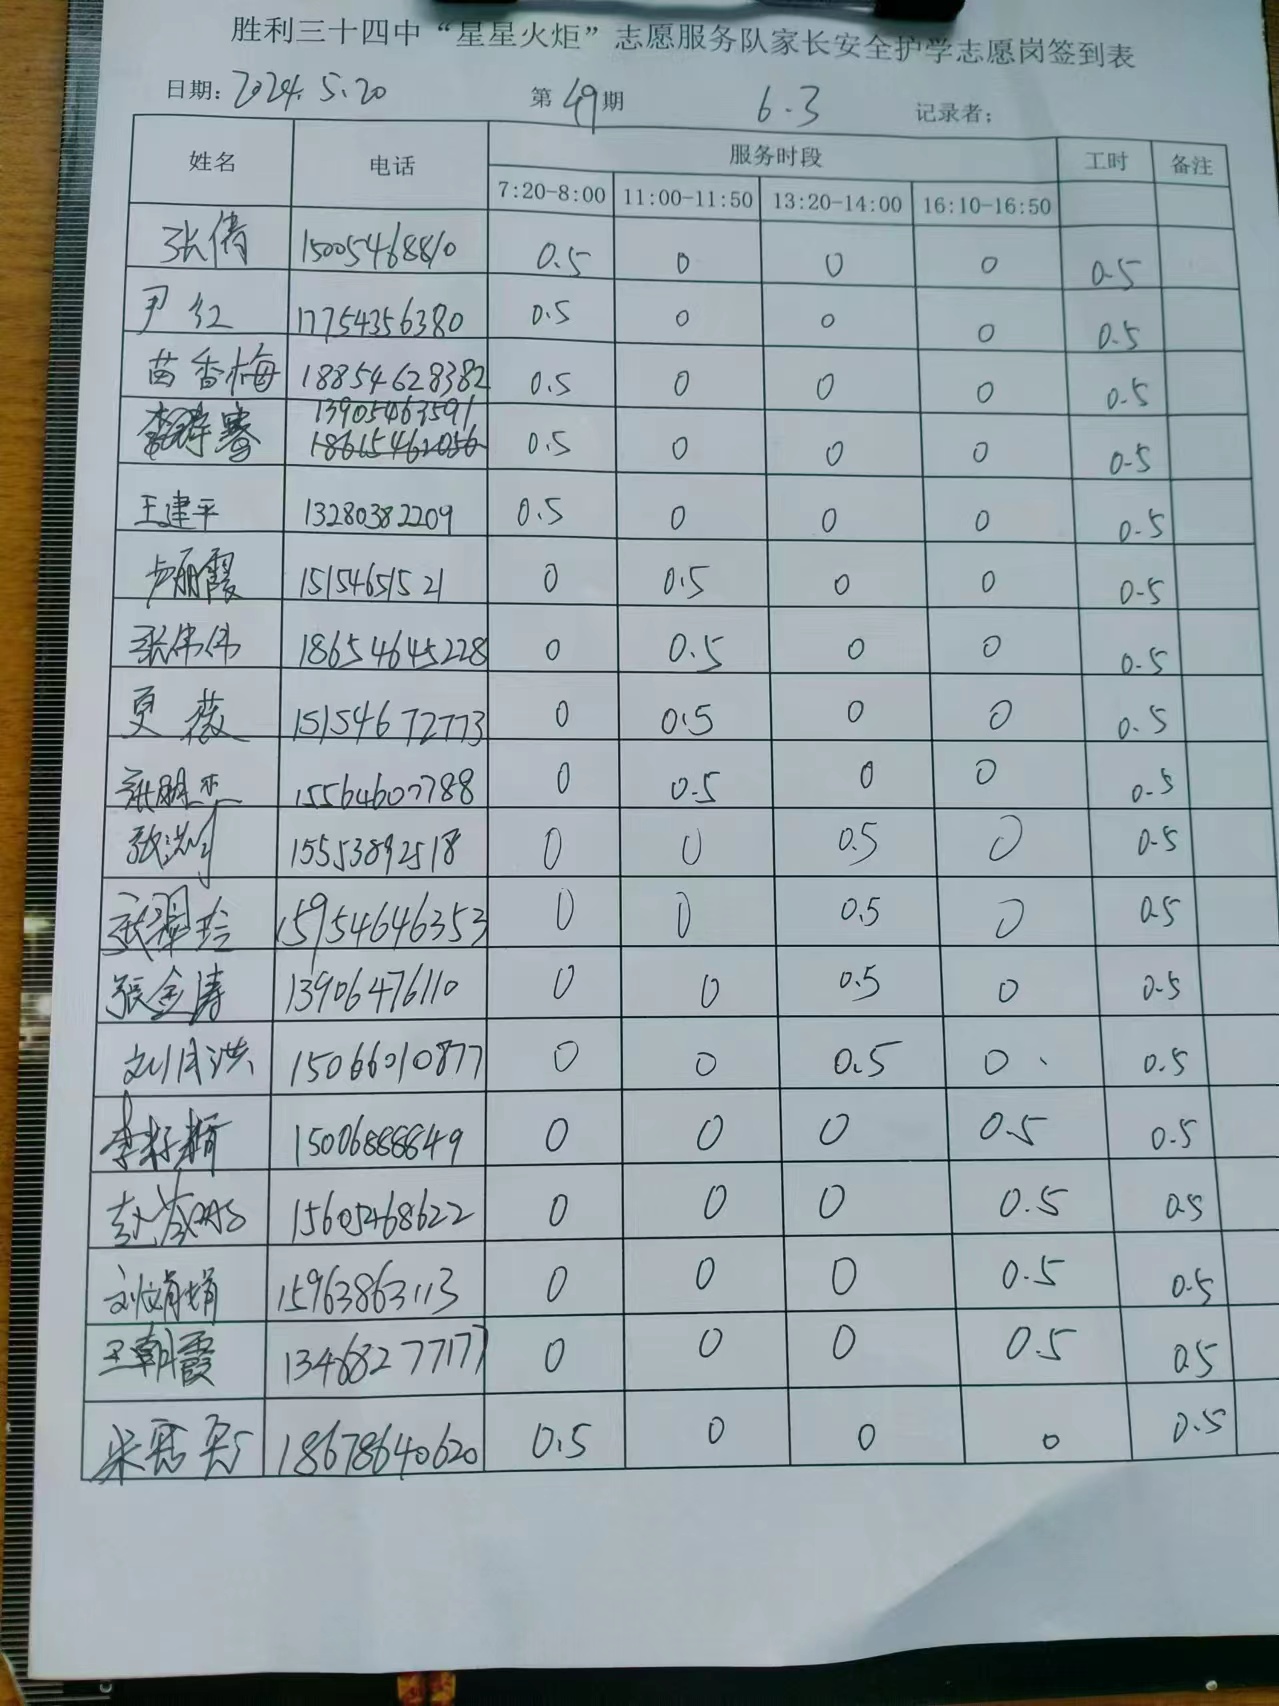 胜利三十四中“星星火炬”志愿服务队家长安全护学志愿岗签到表
日期：2024.5.20 第49期 6.3 记录者；
姓名 电话 服务时段 工时 备注
7:20-8:00 11:00-11:50 13:20-14:00 16:10-16:50
张倩 15005468810 0.5 0 0 0 0.5
尹红 17754356380 0.5 0 0 0 0.5
苗香梅 18854628382 0.5 0 0 0 0.5
13905463591
18615462056 0.5 0 0 0 0.5
王建平 13280382209 0.5 0 0 0 0.5
卢丽霞 15154651521 0 0.5 0 0 0.5
张伟伟 18654645228 0 0.5 0 0 0.5
夏薇 15154672773 0 0.5 0 0 0.5
15564607788 0 0.5 0 0 0.5
15553892518 0 0 0.5 0 0.5
15954646353 0 0 0.5 0 0.5
張金涛 13906476110 0 0 0.5 0 0.5
刘月洪 15066010877 0 0 0.5 0 0.5
15006888849 0 0 0 0.5 0.5
15605468622 0 0 0 0.5 0.5
刘文娟 15963863113 0 0 0 0.5 0.5
王朝霞 13468277177 0 0 0 0.5 0.5
18678640620 0.5 0 0 0 0.5